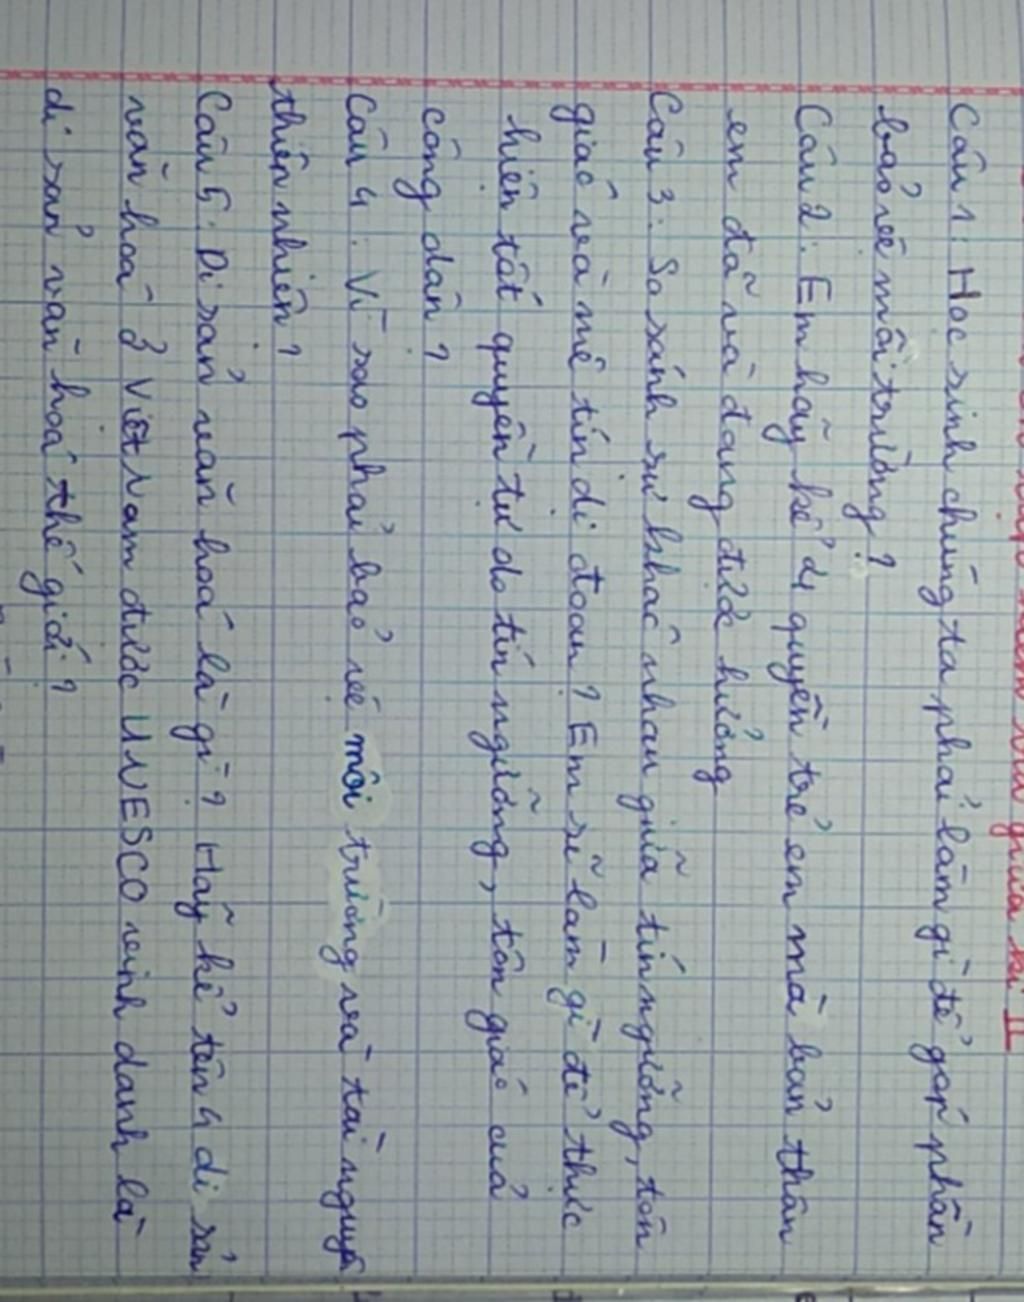 giữa kì II
Câu 1: Học sinh chúng ta phải làm gì để góp phần
bảo vệ môi trường?
Câu 2: Em hãy kể 4 quyền trẻ em mà bản thân
em đã và đang được hưởng
Câu 3: So sánh sự khác nhau giữa tín ngưỡng, tôn
giáo và mê tín dị đoan? Em sẽ làm gì để thực
hiện tốt quyền tự do tín ngưỡng, tôn giáo của
công dân?
Câu 4: Vì sao phải bảo vệ môi trường và tài nguyên
thiên nhiên?
Câu 5: Di sản văn hoá là gì? Hãy kể tên 4 di sản
văn hoá ở Việt Nam được UNESCO vinh danh là
di sản văn hoá thế giới?